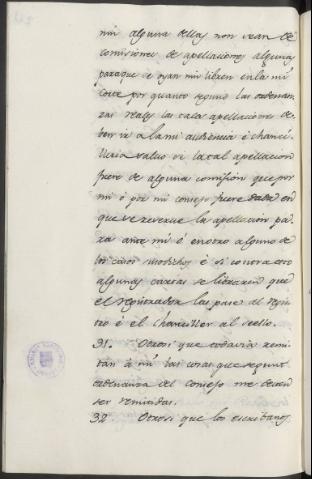 nin alguna dellas non vean de
comisiones de apellaciones algunas
paraque se oyan ni libren en la mi
corte por quanto segund las ordenan-
zas reales las tales apellaciones de-
ben ir a la mi audiencia é chanci-
lleria salvo si la tal apellacion
fuere de alguna comision que por
mi ó por mi consejo fuere dada en
que se reserve la apellacion pa-
ra ante mi ó en otro alguno de
los casos susodichos é si contra esto
algunas cartas se libraren que
el registrador las pase al regis-
tro é el chanciller al sello.
31. Otrosi que todavia remi-
tan á mi las cosas que segunt
ordenanza del consejo me deven
ser remitidas.
32 Otrosi que los escribanos